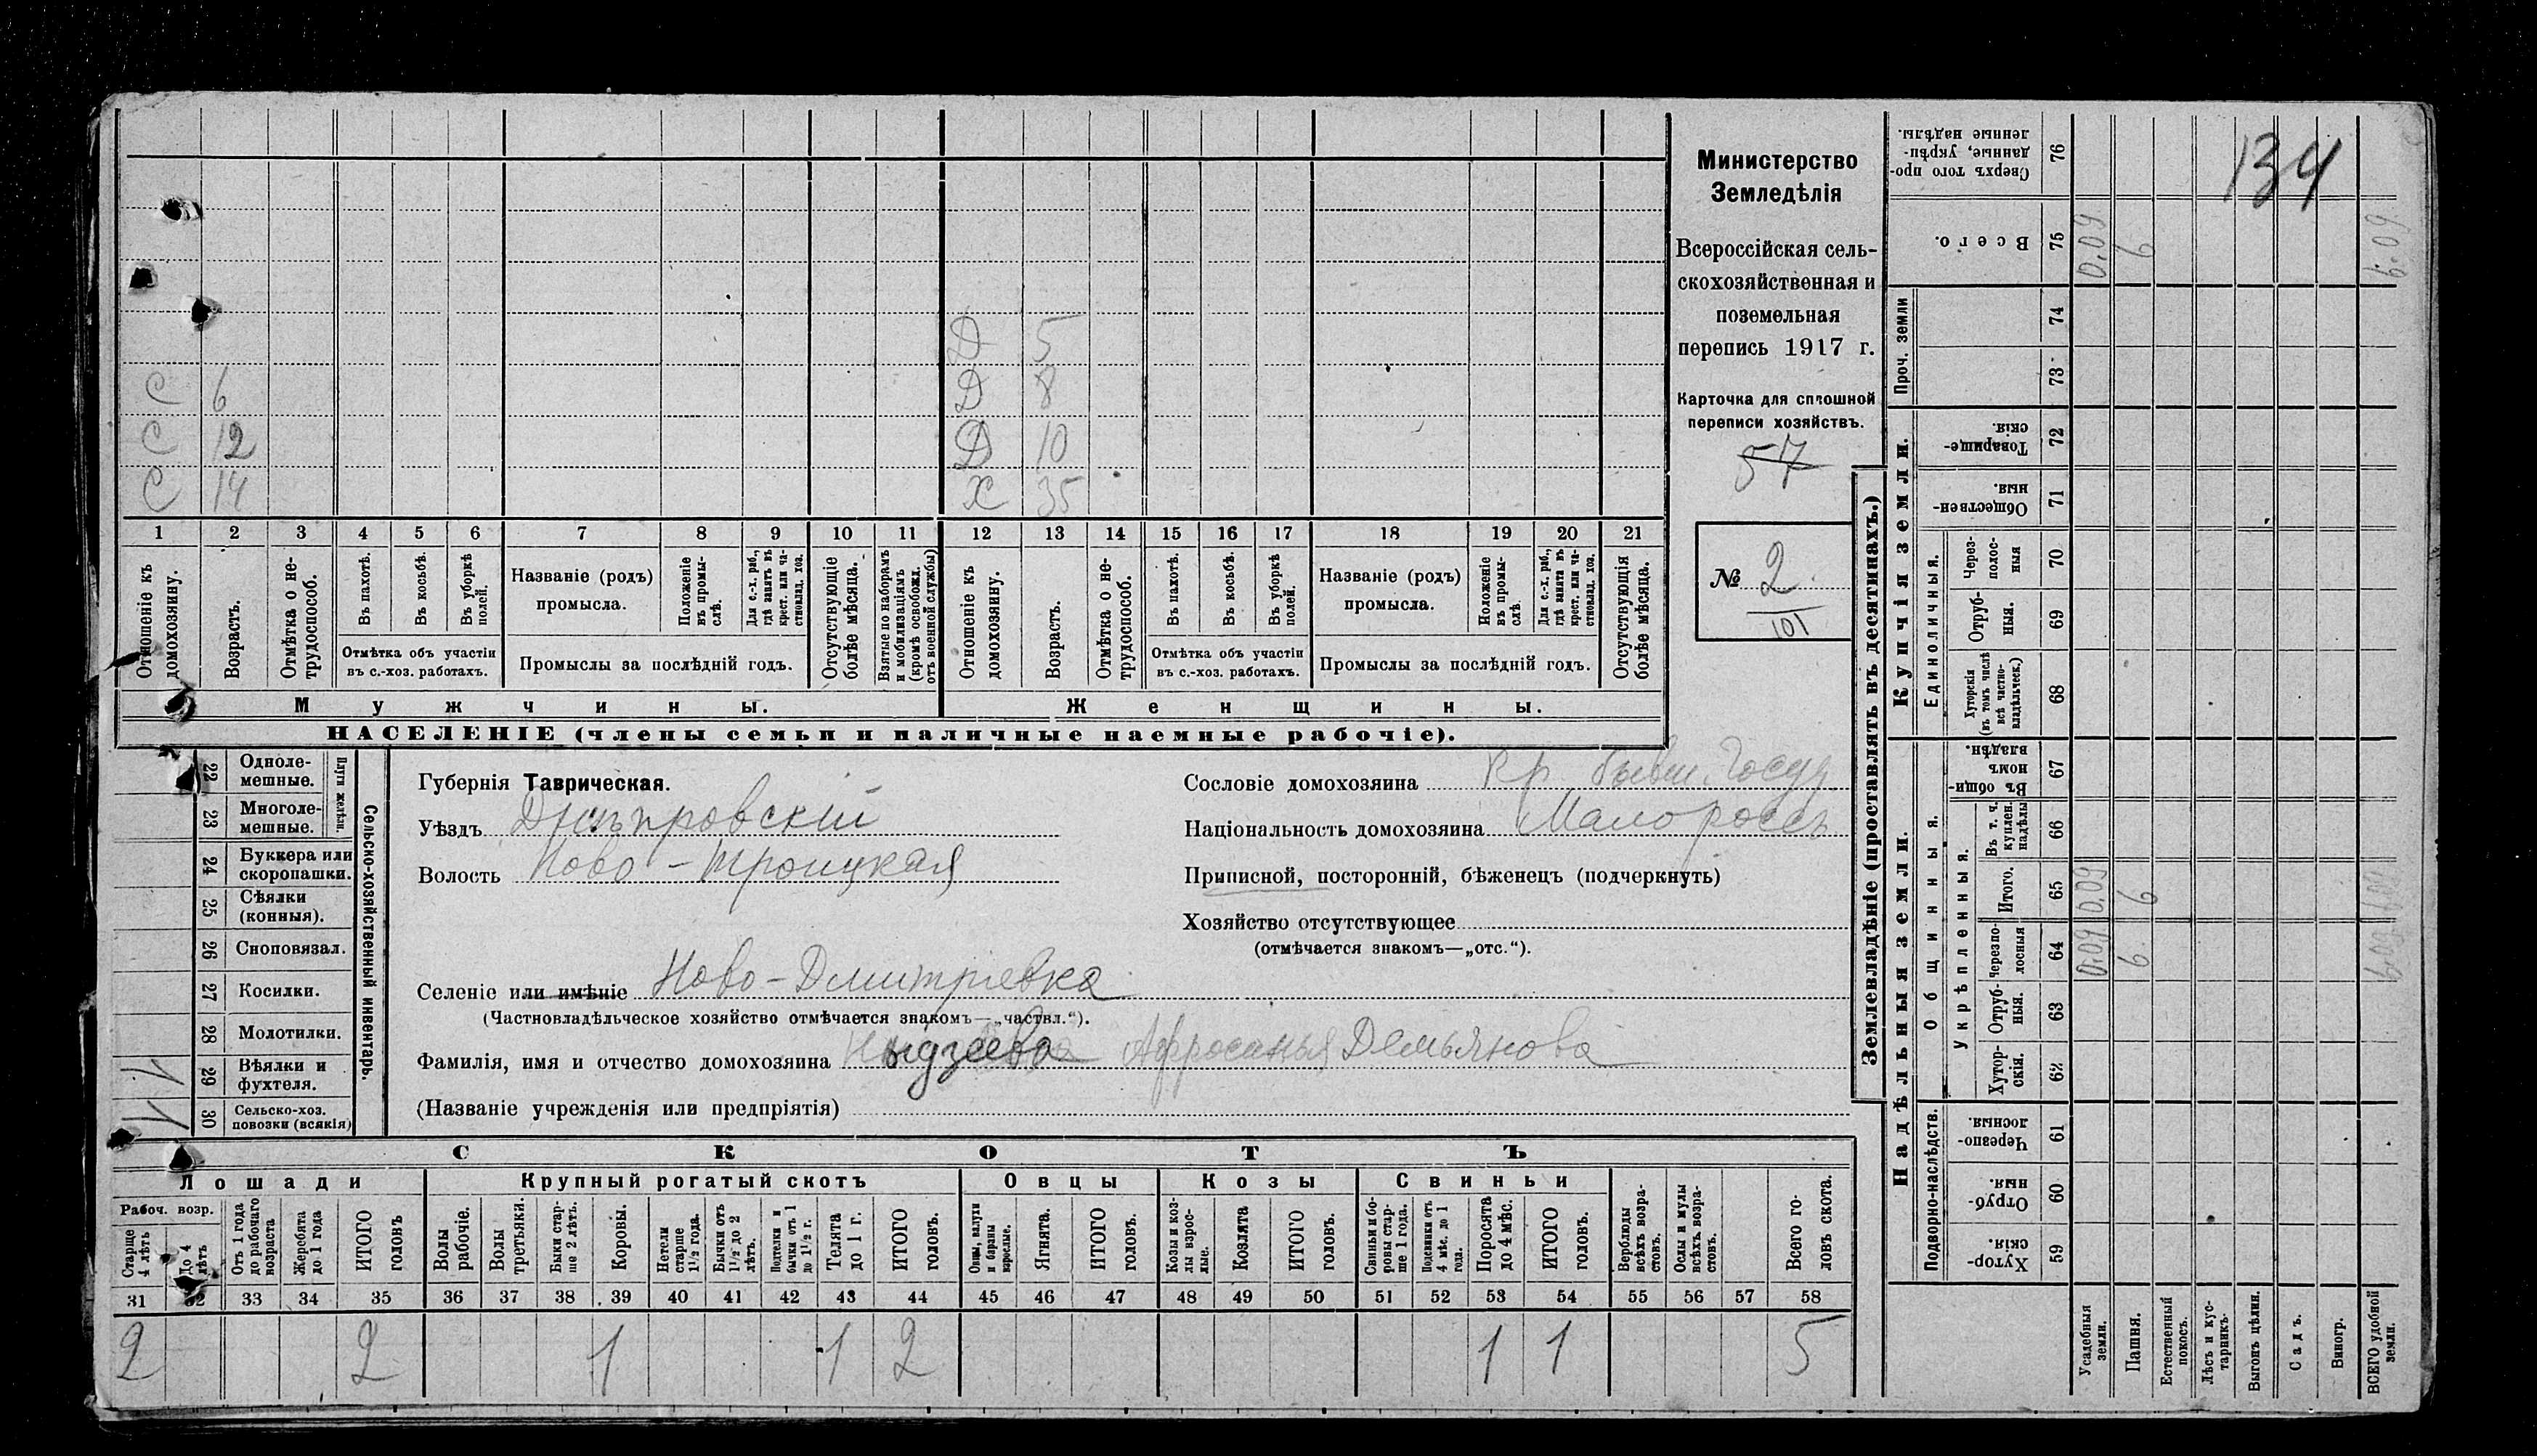 134
Министерство
Земледѣлія
Всероссійская сель-
скохозяйственная и
поземельная
перепись 1917 г.
Карточка для сплошной
переписи хозяйствъ.
57
№ 2
101
Д 5
С 6 Д 8
С 12 Д 10
С 14 Х 35
1 2 3 4 5 6 7 8 9 10 11 12 13 14 15 16 17 18 19 20 21
Отношеніе къ домохозяину.
Возрастъ.
Отмѣтка о не-трудоспособ.
Въ пахотѣ.
Въ косьбѣ.
Въ уборкѣ полей.
Отмѣтка объ участіи въ с.-хоз. работахъ.
Названіе (родъ) промысла.
Положеніе въ промы-слѣ.
Для с.-х. раб., гдѣ занятъ въ крест. или ча-стновлад. хоз.
Промыслы за послѣдній годъ.
Отсутствующіе болѣе мѣсяца.
Взятые по наборамъ и мобилизаціямъ (кромѣ освобожд. отъ военной службы)
Отношеніе къ домохозяину.
Возрастъ.
Отмѣтка о не-трудоспособ.
Въ пахотѣ.
Въ косьбѣ.
Въ уборкѣ полей.
Отмѣтка объ участіи въ с.-хоз. работахъ.
Названіе (родъ) промысла.
Положеніе въ промы-слѣ.
Для с.-х. раб., гдѣ занята въ крест. или ча-стновлад. хоз.
Промыслы за послѣдній годъ.
Отсутствующія болѣе мѣсяца.
Мужчины. Женщины.
НАСЕЛЕНІЕ (члены семьи и наличные наемные рабочіе).
Сельско-хозяйственный инвентарь.
Плуги желѣзн.
22 Одноле-мешные.
23 Многоле-мешные.
24 Буккера или скоропашки.
25 Сѣялки (конныя).
26 Сноповязал.
27 Косилки.
28 Молотилки.
1 29 Вѣялки и фухтеля.
1 30 Сельско-хоз. повозки (всякія)
Губернія Таврическая.
Уѣздъ Днѣпровскій
Волость Ново-Троицкая
Селеніе или имѣніе Ново-Дмитріевка
(Частновладѣльческое хозяйство отмѣчается знакомъ—„частвл.“).
Фамилія, имя и отчество домохозяина Демьянова
(Названіе учрежденія или предпріятія)
Сословіе домохозяина Кр. бывш. Госуд
Національность домохозяина Малороссъ
Приписной, посторонній, бѣженецъ (подчеркнуть)
Хозяйство отсутствующее
(отмѣчается знакомъ—„отс.“).
СКОТЪ
Лошади Крупный рогатый скотъ Овцы Козы Свиньи
Рабоч. возр.
Старше 4 лѣтъ
До 4 лѣтъ
Отъ 1 года до рабочаго возраста
Жеребята до 1 года
ИТОГО головъ
Волы рабочіе.
Волы третьяки.
Быки стар-ше 2 лѣтъ.
Коровы.
Нетели старше 1½ года.
Бычки отъ 1½ до 2 лѣтъ.
Подтелки и бычки отъ 1 до 1½ г.
Телята до 1 г.
ИТОГО головъ.
Овцы, валухи и бараны взрослые.
Ягнята.
ИТОГО головъ.
Козы и коз-лы взрос-лые.
Козлята
ИТОГО головъ.
Свиньи и бо-ровы стар-ше 1 года.
Подсвинки отъ 4 мѣс. до 1 года.
Поросята до 4 мѣс.
ИТОГО головъ.
Верблюды всѣхъ возра-стовъ.
Ослы и мулы всѣхъ возра-стовъ.
Всего го-ловъ скота.
31 32 33 34 35 36 37 38 39 40 41 42 43 44 45 46 47 48 49 50 51 52 53 54 55 56 57 58
2 2 1 1 2 1 1 5
Землевладѣніе (проставлять въ десятинахъ.)
Надѣльныя земли. Купчія земли. Проч. земли
Подворно-наслѣдств.
Общинныя.
Укрѣпленныя.
Единоличныя.
Сверхъ того про-данные, укрѣп-ленные надѣлы. 76
Всего. 75 0.09 6 6.09
74
73
Товарище-скія. 72
Обществен-ныя. 71
Через-полос-ныя 70
Отруб-ныя. 69
Хуторскія (въ томъ числѣ всѣ частно-владѣльческ.) 68
Въ общи-номъ владѣн. 67
Въ т. ч. куплен. надѣлы 66
Итого. 65 0.09 6 6.09
Черезпо-лосныя 64 0.09 6 6.09
Отруб-ныя. 63
Хутор-скія. 62
Черезпо-лосныя. 61
Отруб-ныя. 60
Хутор-скія. 59
Усадебныя земли.
Пашня.
Естественный покосъ.
Лѣсъ и кус-тарникъ.
Выгонъ цѣлин.
Садъ.
Виногр.
ВСЕГО удобной земли.